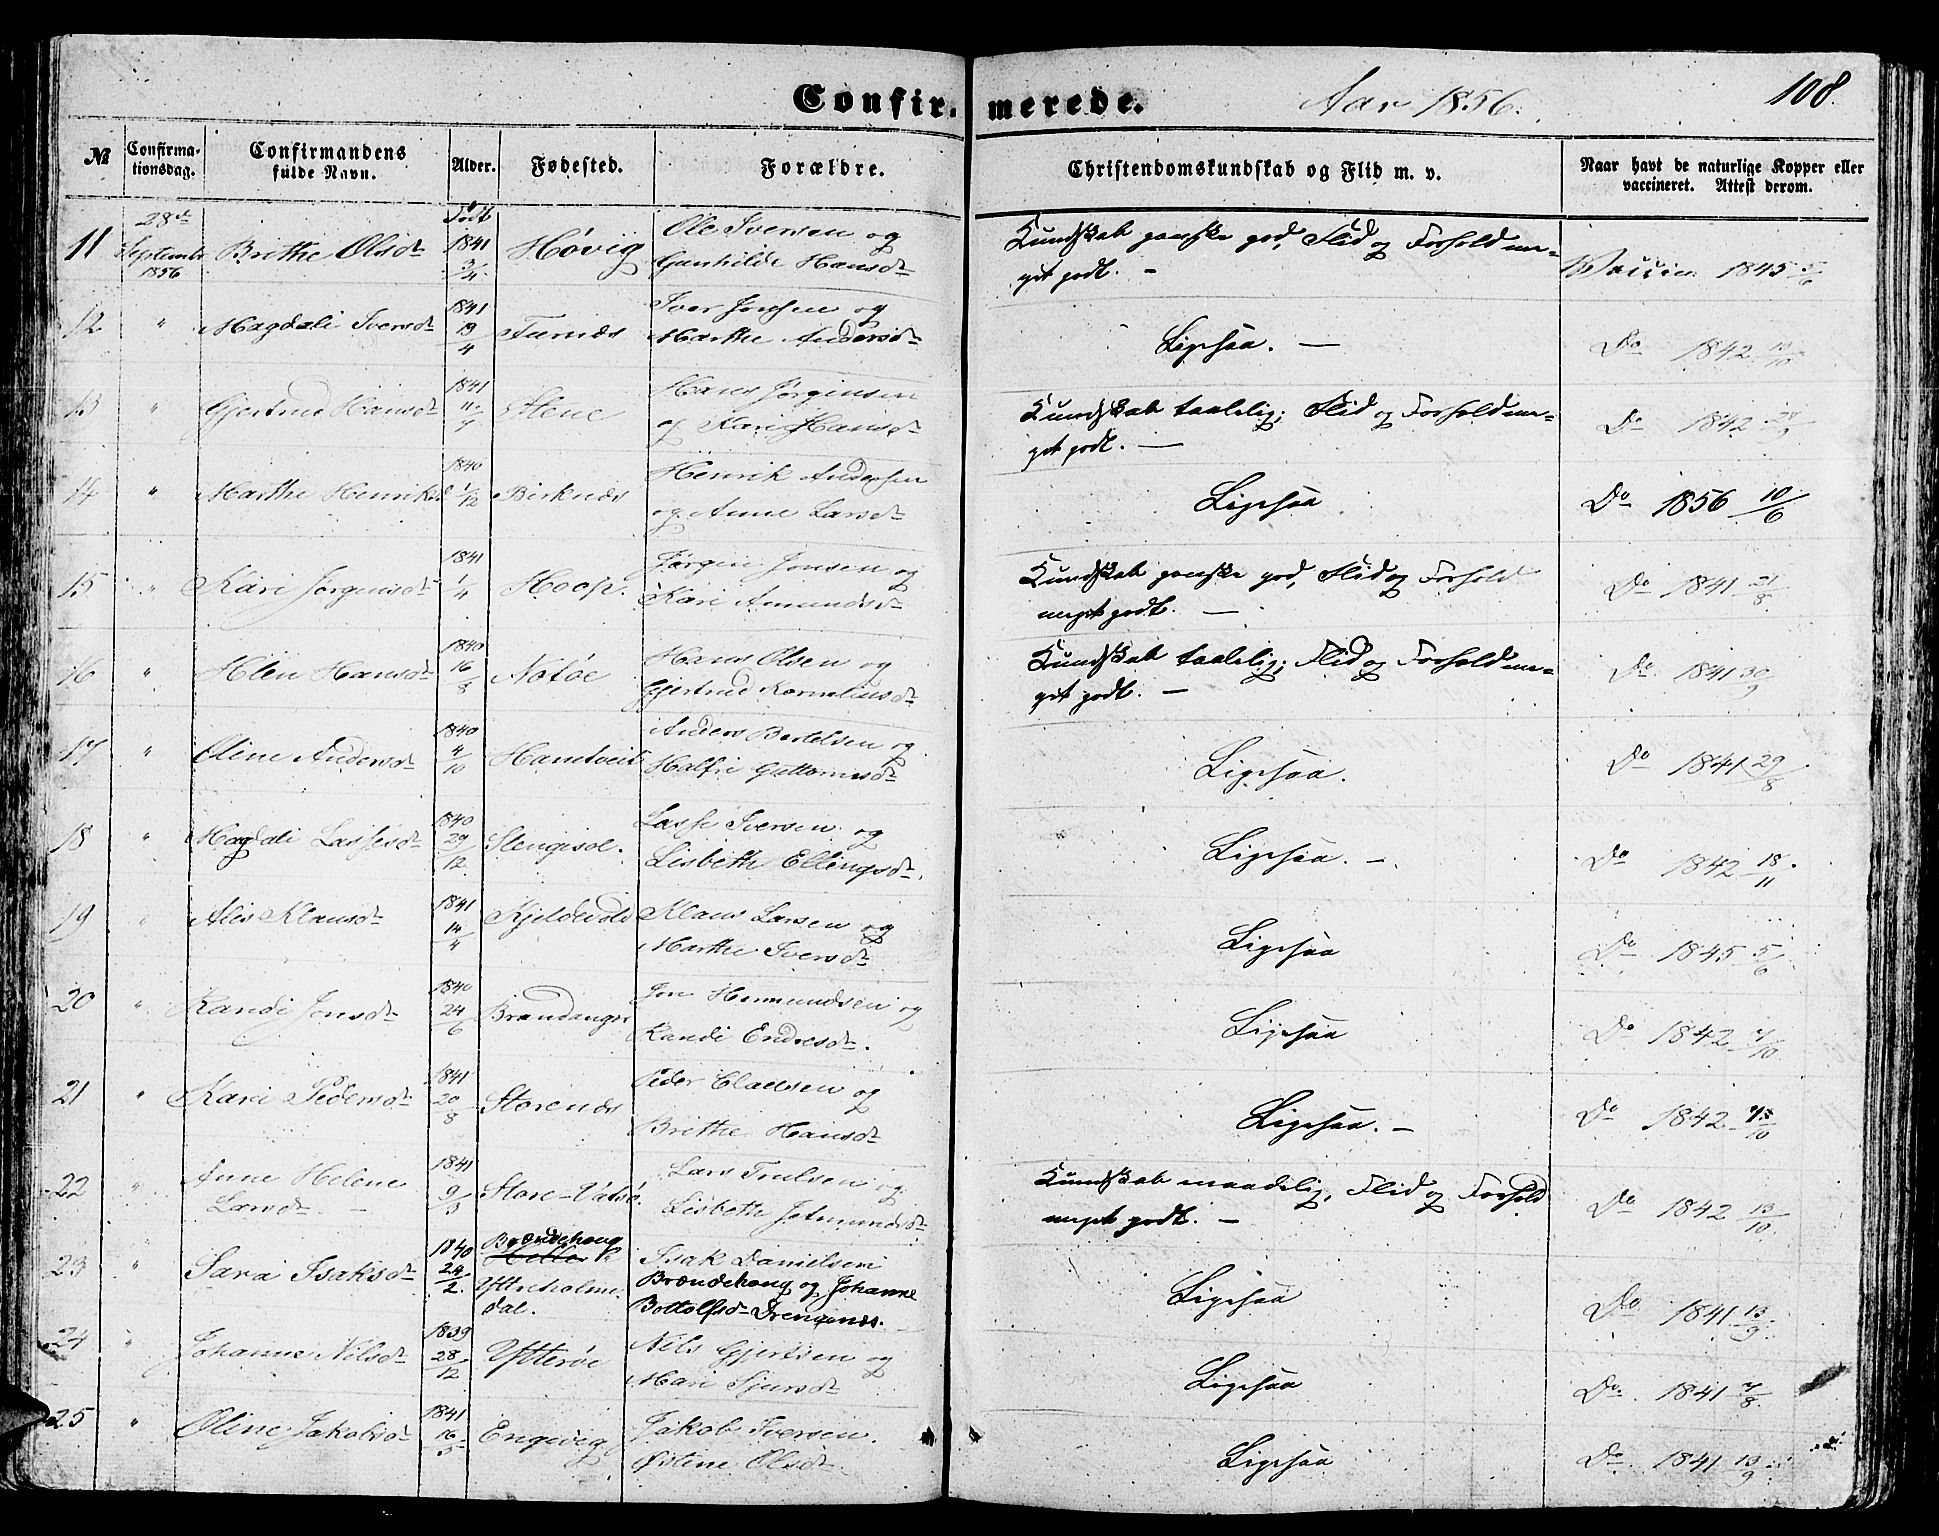 Confir- merede. Aar 1856. 108
№ Confirma- tionsdag. Confirmandens fulde Navn. Alder. Fødested. Forældre. Christendomskundskab og Flid m. v. Naar havt de naturlige Kopper eller vaccineret. Attest derom.
11 28de September 1856 Brithe Olsdtr Født 1841 3/4 Høvig Ole Iversen og
Gunhilde Hansdtr Kundskab ganske god, Flid og Forhold me-
get godt. — Vaccin 1845 5/6
12 " Magdali Iversdtr 1841 19/4 Furnæs Iver Jonsen og
Marthe Andersdtr Ligesaa. — Do 1842 13/10
13 " Gjertrud Hansdtr 1841 Stene Hans Jørgensen
og Kari Hansdtr Kundskab taalelig; Flid og Forhold me-
get godt. — Do 1842
14 " Marthe Henriksd 1840 1/12 Birknæs Henrik Andersen
og Anne Larsdtr Ligesaa Do 1856 10/6
15 " Kari Jørgensdtr 1841 1/4 Hoop. Jørgen Jonsen og
Kari Amundsdtr Kundskab ganske god, Flid og Forhold
meget godt. — Do 1841 21/8
16 " Hansdtr 1840 16/8 Notøe Hans Olsen og
Gjertrud Korneliusdtr Kundskab taalelig; Flid og Forhold me-
get godt. — Do 1841 30/9
17 " Oline Andersdtr 1840 4/10 Hantveit Anders Bertelsen og
Halfri Guttormsdtr Ligesaa. Do 1841 29/8
18 " Magdali Lassesdtr 1840 29/12 Stengisol. Lasse Iversen og
Lisbeth Ellingsdtr. Ligesaa. — Do 1842 18/11
19 " Alis Klausdtr 1841 14/4 Kjeldevole Klaus Larsen og
Marthe Iversdtr Ligesaa Do 1845 5/6
20 " Randi Jonsdtr 1840 24/6 Brandanger Jon Hermundsen og
Randi Endresdtr. Ligesaa Do 1842 7/10
21 " Kari Pedersdtr 1841 20/8 Storenæs Peder Claesen og
Brithe Hansdtr Ligesaa. — Do 1842
22 " Anne Helene
Larsdtr — 1841 9/3 Store-Vatsø. Lars Trulsen og
Lisbeth Jetmundsdtr Kundskab maadelig, Flid og Forhold
meget godt. — Do 1842 13/10
23 " Sara Isaksdtr 1840 24/2 Brændehoug
Ytreholme-
dal. Isak Danielsen
Brændehoug og Johanne
Bottolfsdtr Drengenæs. Ligesaa Do 1841 13/9
24 " Johanne Nilsdtr 1839 28/12 Ytterøe Nils Gjertsen og
Mari Sjursdtr Ligesaa Do. 1841 7/8
25 " Oline Jakobsdtr 1841 16/5 Engevig Jakob Iversen.
Østine Olsdtr. Ligesaa Do 1841 13/9